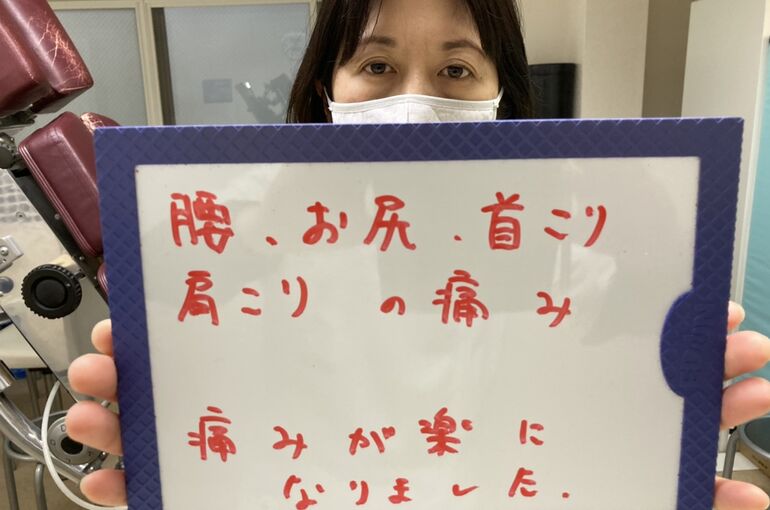 腰、お尻、首こり
肩こり の痛み
痛みが楽に
なりました.